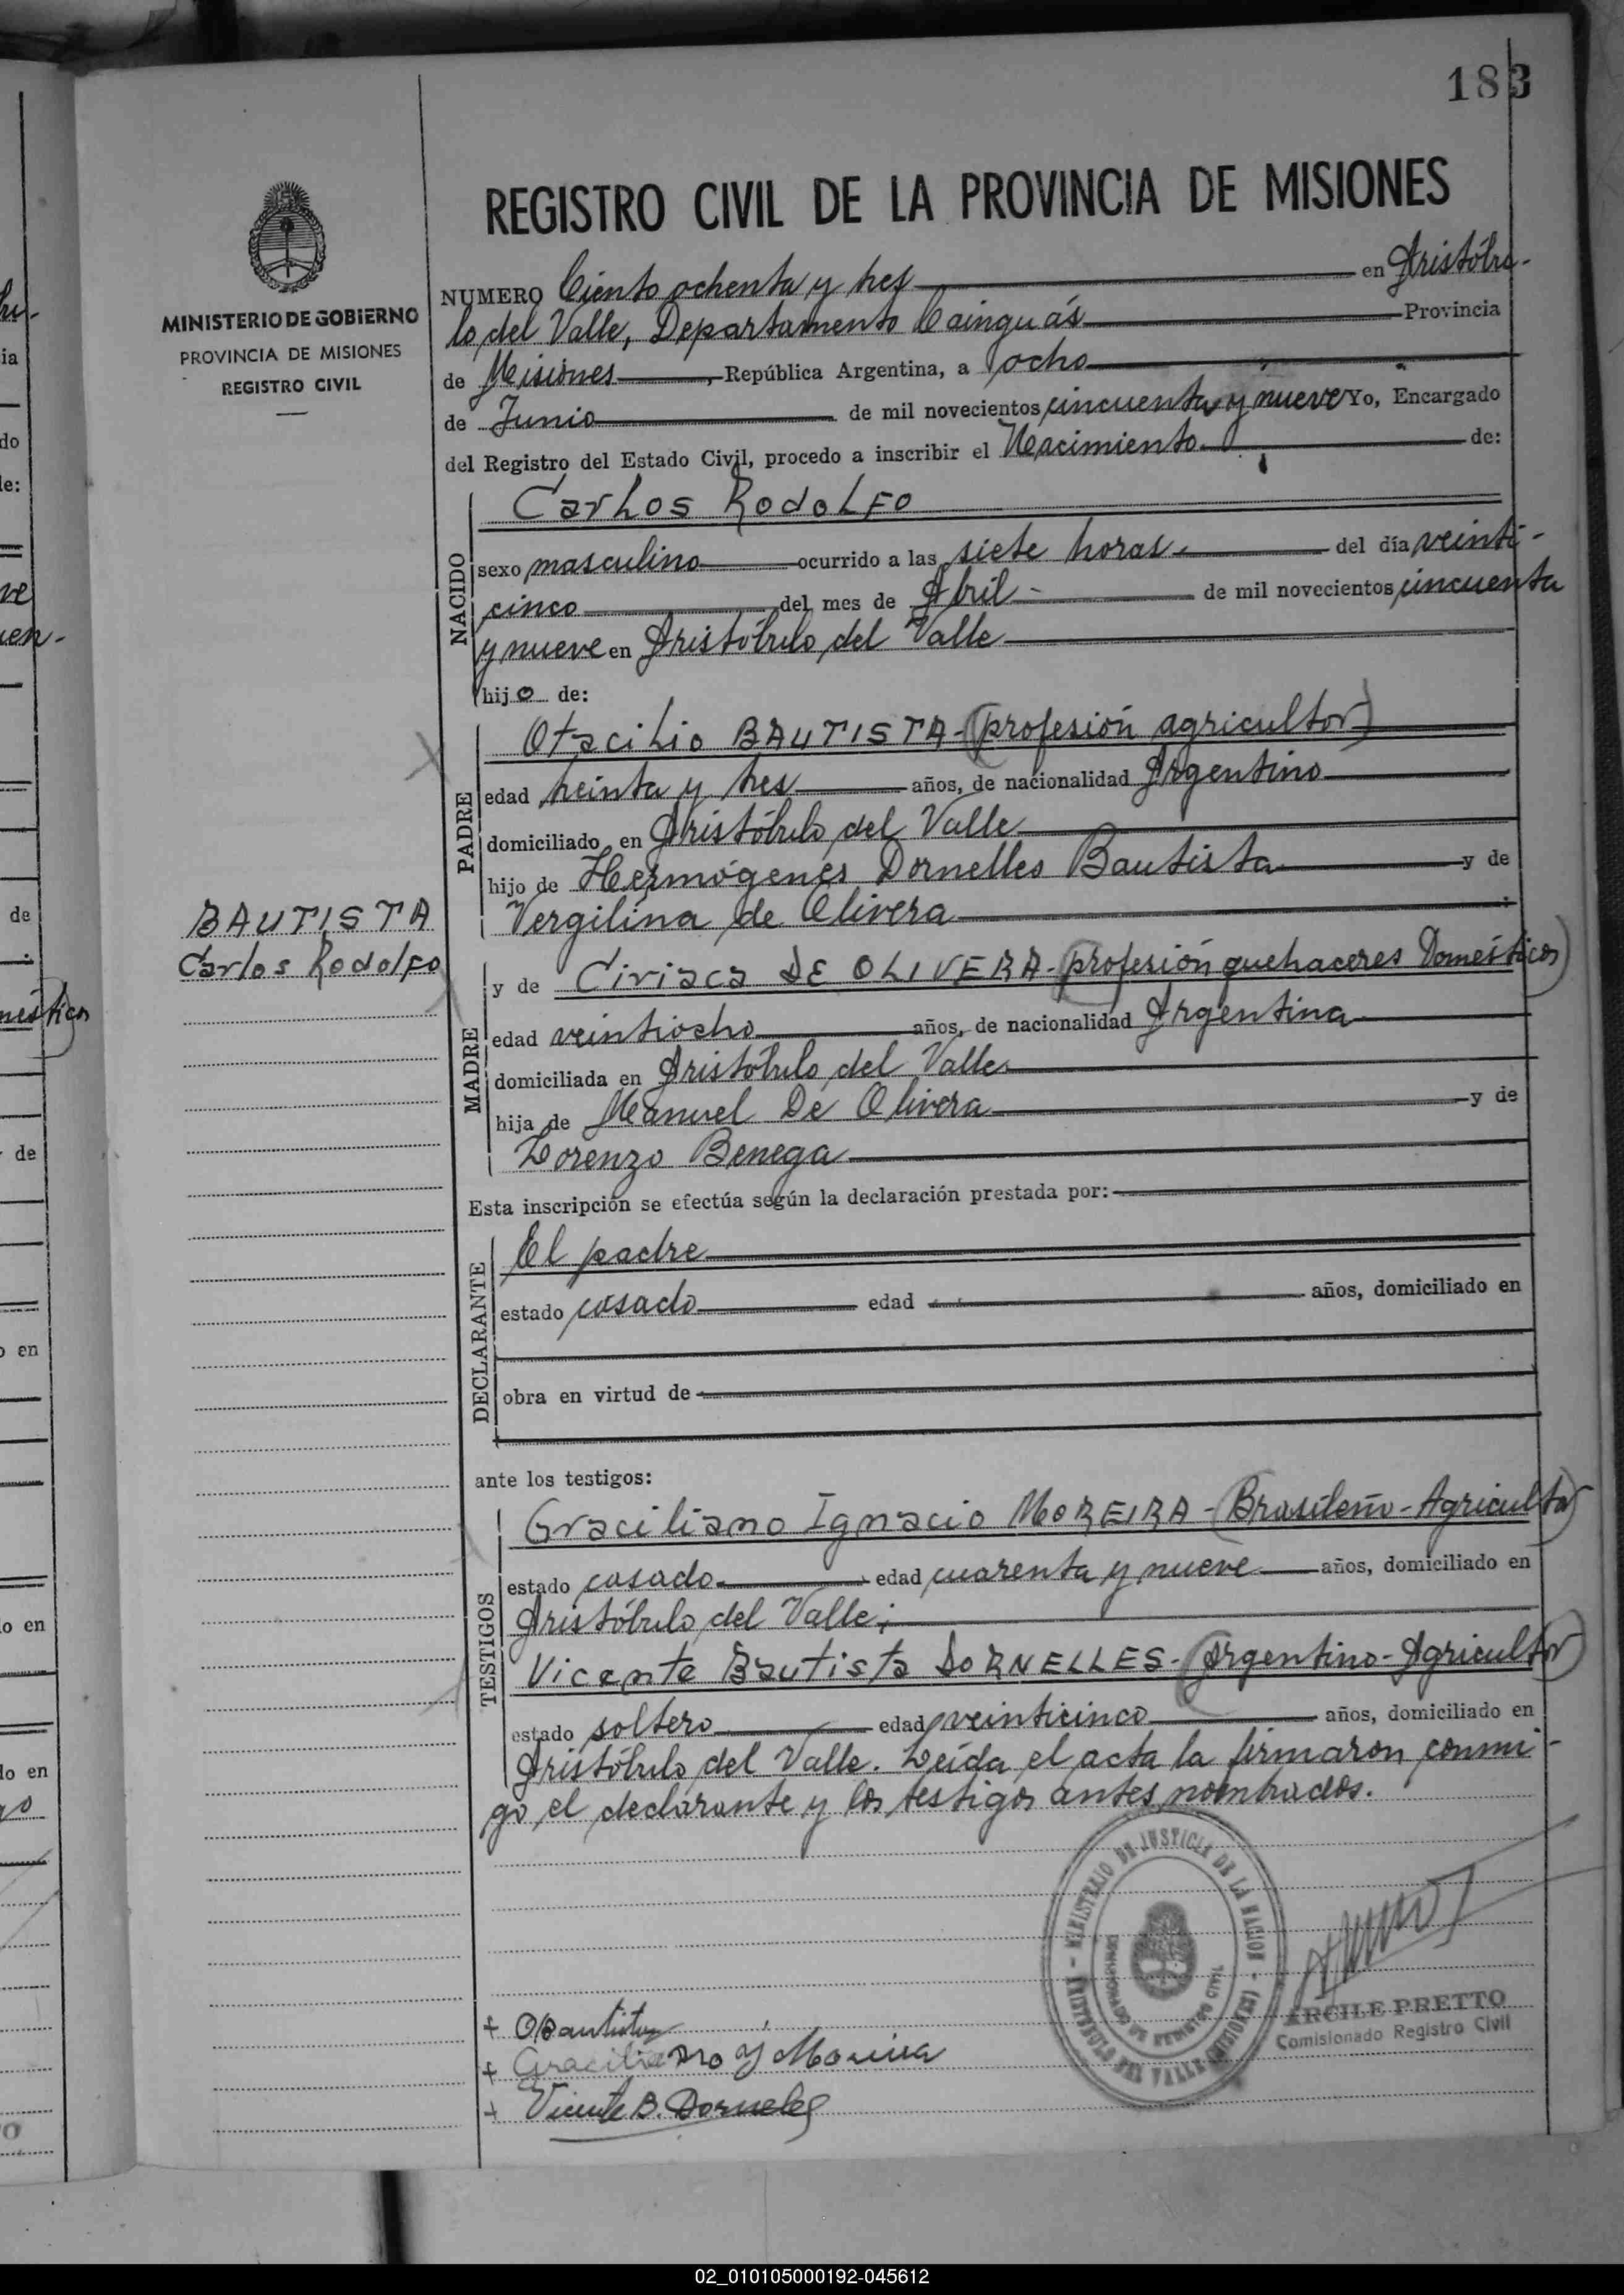 183
REGISTRO CIVIL DE LA PROVINCIA DE MISIONES
MINISTERIO DE GOBIERNO
PROVINCIA DE MISIONES
REGISTRO CIVIL
NUMERO Ciento ochenta y tres en Aristóbu-
lo del Valle, Departamento Cainguás Provincia
de Misiones, República Argentina, a ocho
de Junio de mil novecientos cincuenta y nueve Yo, Encargado
del Registro del Estado Civil, procedo a inscribir el Nacimiento de:
NACIDO
Carlos Rodolfo
sexo masculino ocurrido a las siete horas.- del día veinti-
cinco del mes de Abril - de mil novecientos cincuenta
y nueve en Aristóbulo del Valle
hijo de:
PADRE
Otacilio BAUTISTA-(profesión agricultor)
edad treinta y tres años, de nacionalidad Argentino
domiciliado en Aristóbulo del Valle
hijo de Hermógenes Dornelles Bautista y de
Vergilina de Olivera
BAUTISTA
Carlos Rodolfo
MADRE
y de Ciriaca DE OLIVERA-(profesión quehaceres Domésticos)
edad veintiocho años, de nacionalidad Argentina
domiciliada en Aristóbulo del Valle
hija de Manuel De Olivera y de
Lorenzo Benega
Esta inscripción se efectúa según la declaración prestada por:
DECLARANTE
El padre
estado casado edad años, domiciliado en
obra en virtud de
ante los testigos:
TESTIGOS
Graciliano Ignacio MOREIRA-(Brasileño-Agricultor)
estado casado edad cuarenta y nueve años, domiciliado en
Aristóbulo del Valle;
Vicente Bautista DORNELLES-(Argentino-Agricultor)
estado soltero edad veinticinco años, domiciliado en
Aristóbulo del Valle. Leída el acta la firmaron conmi-
go el declarante y los testigos antes nombrados.
MINISTERIO DE JUSTICIA DE LA NACION - ARISTOBULO DEL VALLE (MISIONES) -
REGISTRO CIVIL
ARCILE PRETTO
Comisionado Registro Civil
+ OBautista
+ Graciliano Y Moreira
+ Vicente B. Dorneles
02_010105000192-045612